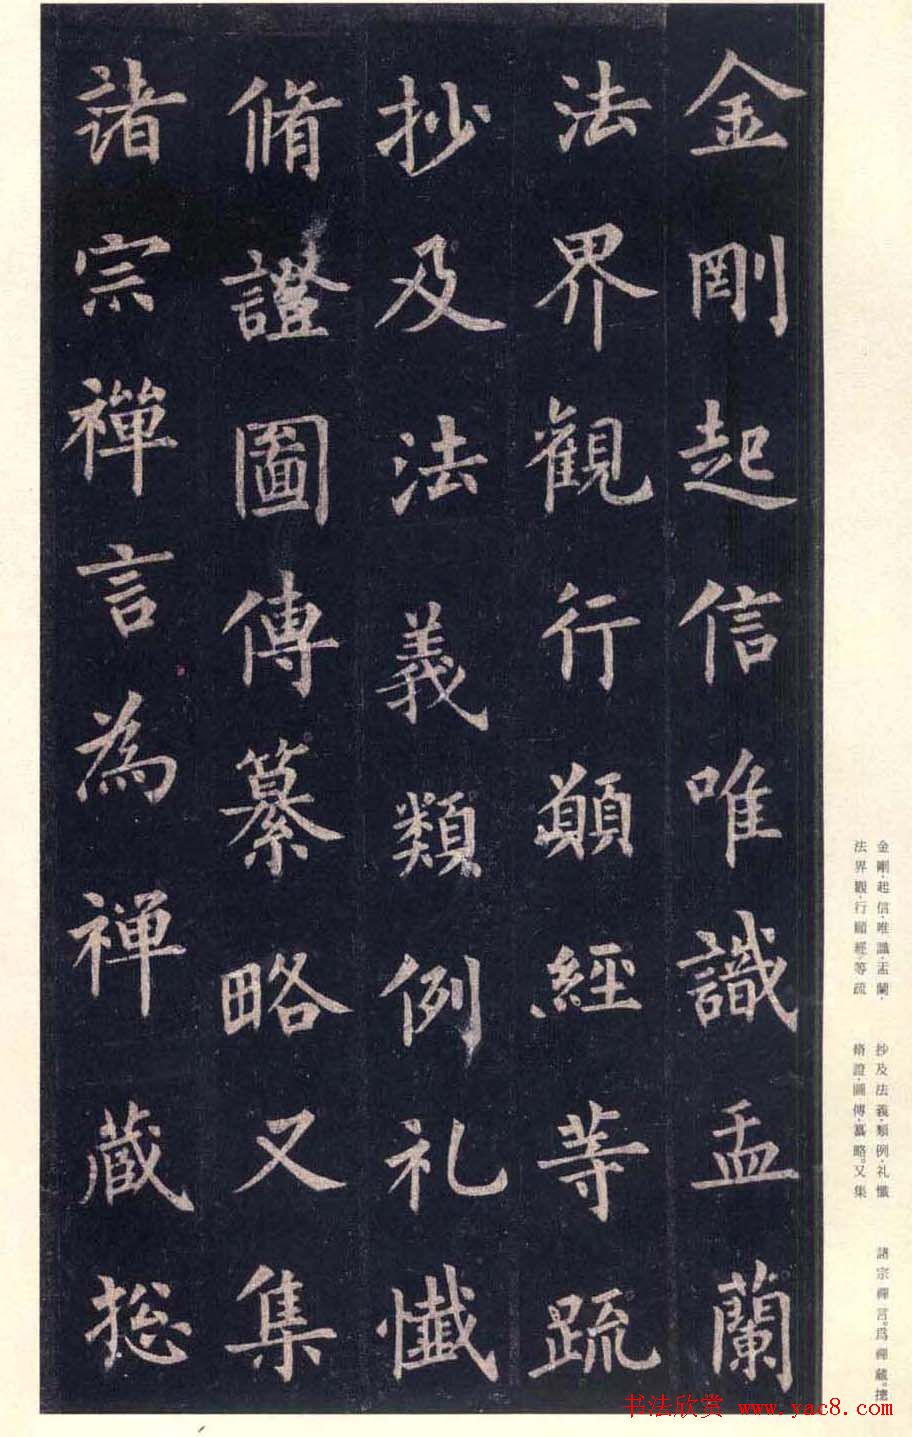 金剛起信唯識盂蘭
法界觀行願經等疏
抄及法義類例礼懺
脩證圖傳纂略又集
諸宗禪言為禅蔵揔
金剛·起信·唯識·盂蘭·
法界觀·行願經·等疏
抄及法義·類例·礼懺
脩證·圖傳·纂略。又集
諸宗禪言。爲禪藏。揔
书法欣赏 www.yac8.com